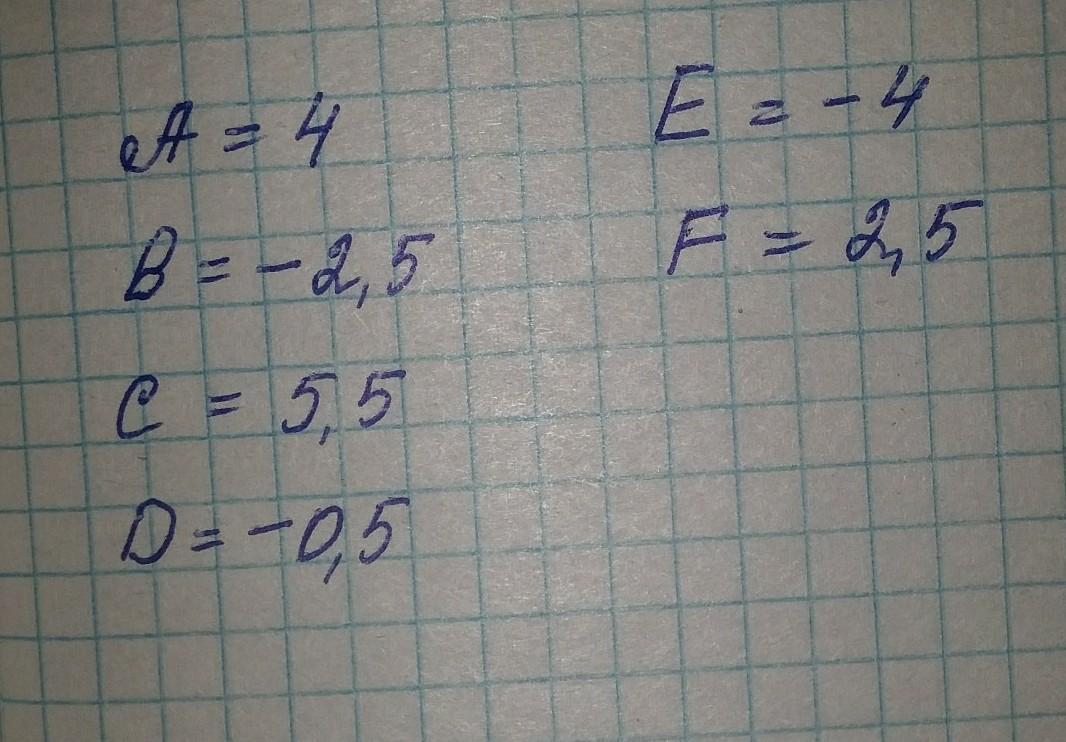 A = 4
B = -2,5
C = 5,5
D = -0,5
E = -4
F = 2,5